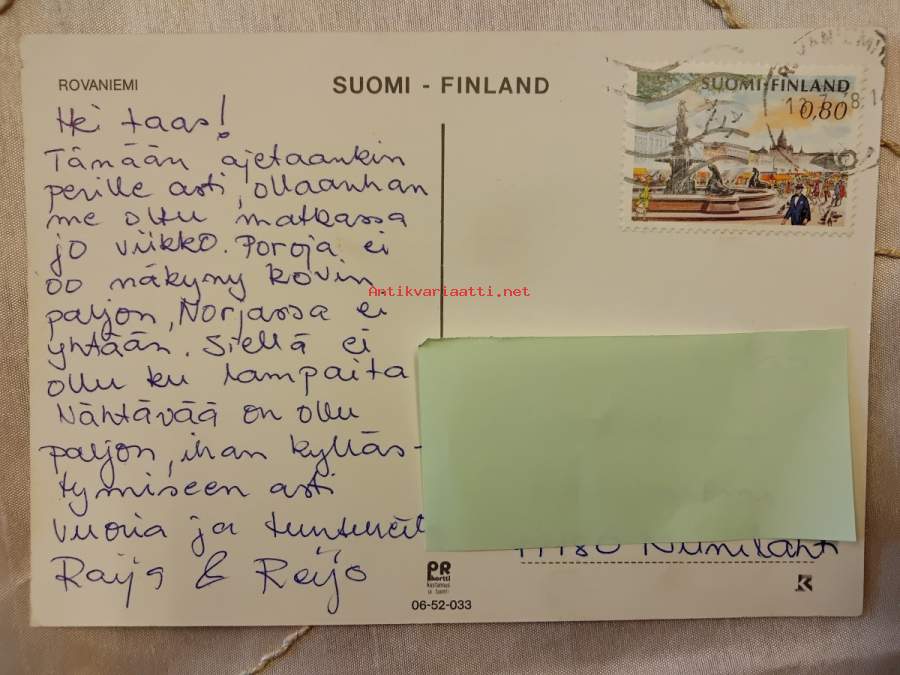 ROVANIEMI
SUOMI - FINLAND
SUOMI-FINLAND
0,80
Hei taas!
Tänään ajetaankin
perille asti, ollaanhan
me oltu matkassa
jo viikko. Poroja ei
oo näkyny kovin
paljon, Norjassa ei
yhtään. Siellä ei
ollu ku lampaita
Nähtävää on ollu
paljon, ihan kylläs-
tymiseen asti
vuoria ja
Raija & Reijo
Antikvariaatti.net
Niinilahti
PR
kortti
06-52-033